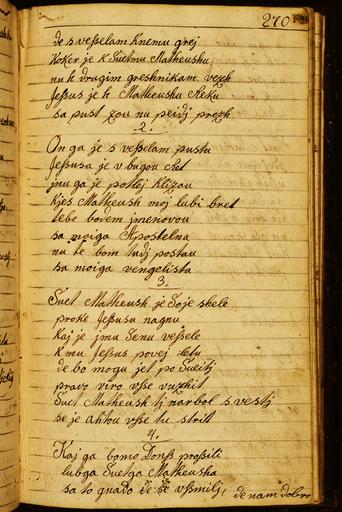 270
de s veſselam knemu grej
koker je k Suetmu Matheushu
nu k drugim greshnikam vezh
Jeſsus je k Matheushu rheku
sa pust zou nu peidj prezh
2.
On ga je s veſselam pustu
Jeſsusa je v bugou chet
jnu ga je potlej klizou
kjes Matheush moj lubi bret
tebe bodem jmenovou
sa moiga Apostelna
nu te bom tudj postau
sa moiga vengelista
3.
Suet Matheush je Soje shele
proke Jeſsusu nagnu
kaj je jmu Senu veſsele
k mu Jeſsus povej letu
de bo mogu jet po Sueitj
pravo viro vſse vuzhit
Suet Matheush tj nar bol s vestj
se je ahtou vſse tu strit
4.
Kaj ga bomo Donſs proſsili
lubga Suetga Matheusha
sa to gnado de se vſsmilj, de nam dobro